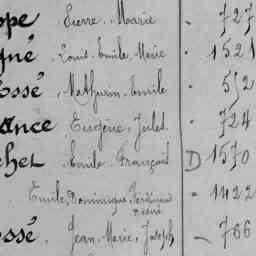 ppe Pierre Marie - 727
gné, Louis Emile Marie - 1521
ossé, Mathurin Emile - 512
ance Eugène, Jules - 724
chet Emile François D 1570
Emile, Dominique, Ferdinand
Réné - 1422
ossé, Jean Marie, Joseph - 766